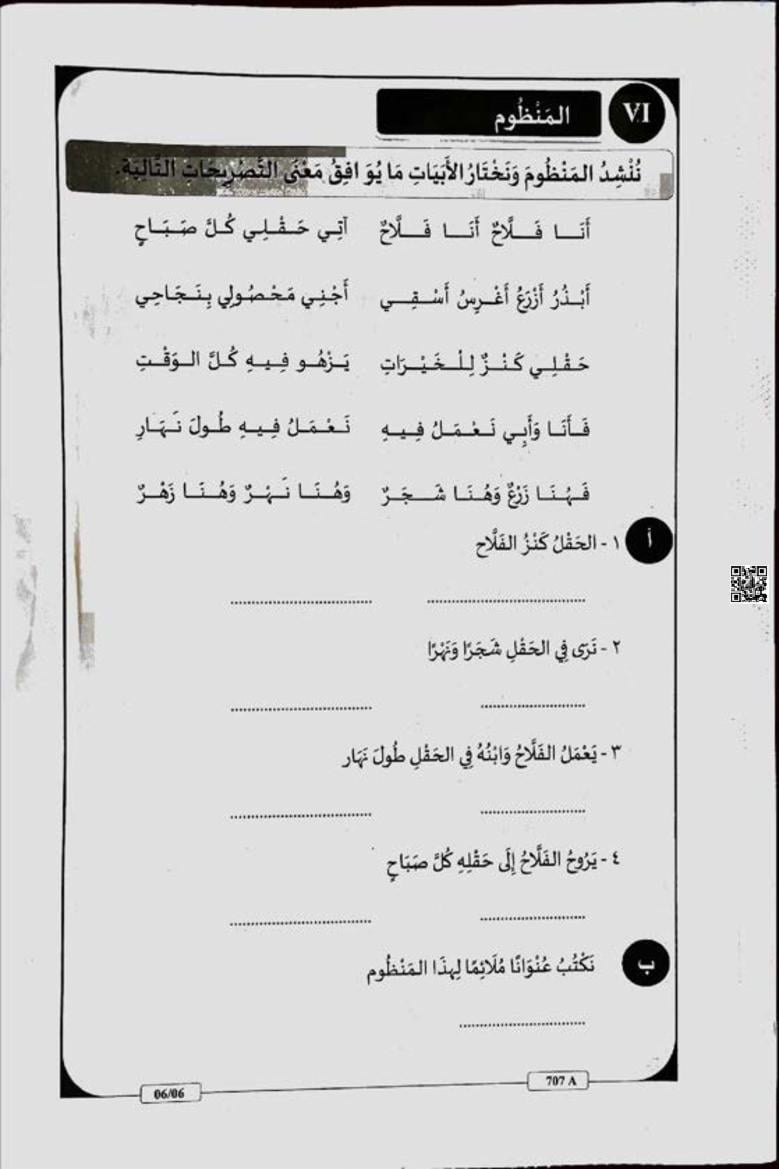 VI المَنْظُوم
نُنْشِدُ المَنْظُومَ وَنَخْتَارُ الأَبَيَاتِ مَا يُوَافِقُ مَعْنَى التَّصْرِيحَاتِ التَّالِيَة.
أَنَا فَلَّاحٌ أَنَا فَلَّاحٌ آتِي حَقْلِي كُلَّ صَبَاحٍ
أَبْذُرُ أَزْرَعُ أَغْرِسُ أَسْقِي أَجْنِي مَحْصُولِي بِنَجَاحِي
حَقْلِي كَنْزٌ لِلْخَيْرَاتِ يَزْهُو فِيهِ كُلَّ الوَقْتِ
فَأَنَا وَأَبِي نَعْمَلُ فِيهِ نَعْمَلُ فِيهِ طُولَ نَهَارِ
فَهُنَا زَرْعٌ وَهُنَا شَجَرٌ وَهُنَا نَهْرٌ وَهُنَا زَهْرٌ
أ ١ - الحَقْلُ كَنْزُ الفَلَّاح
٢ - نَرَى فِي الحَقْلِ شَجَرًا وَنَهْرًا
٣ - يَعْمَلُ الفَلَّاحُ وَابْنُهُ فِي الحَقْلِ طُولَ نَهَار
٤ - يَرُوحُ الفَلَّاحُ إِلَى حَقْلِهِ كُلَّ صَبَاحٍ
ب نَكْتُبُ عُنْوَانًا مُلَائِمًا لِهَذَا المَنْظُوم
707 A
06/06